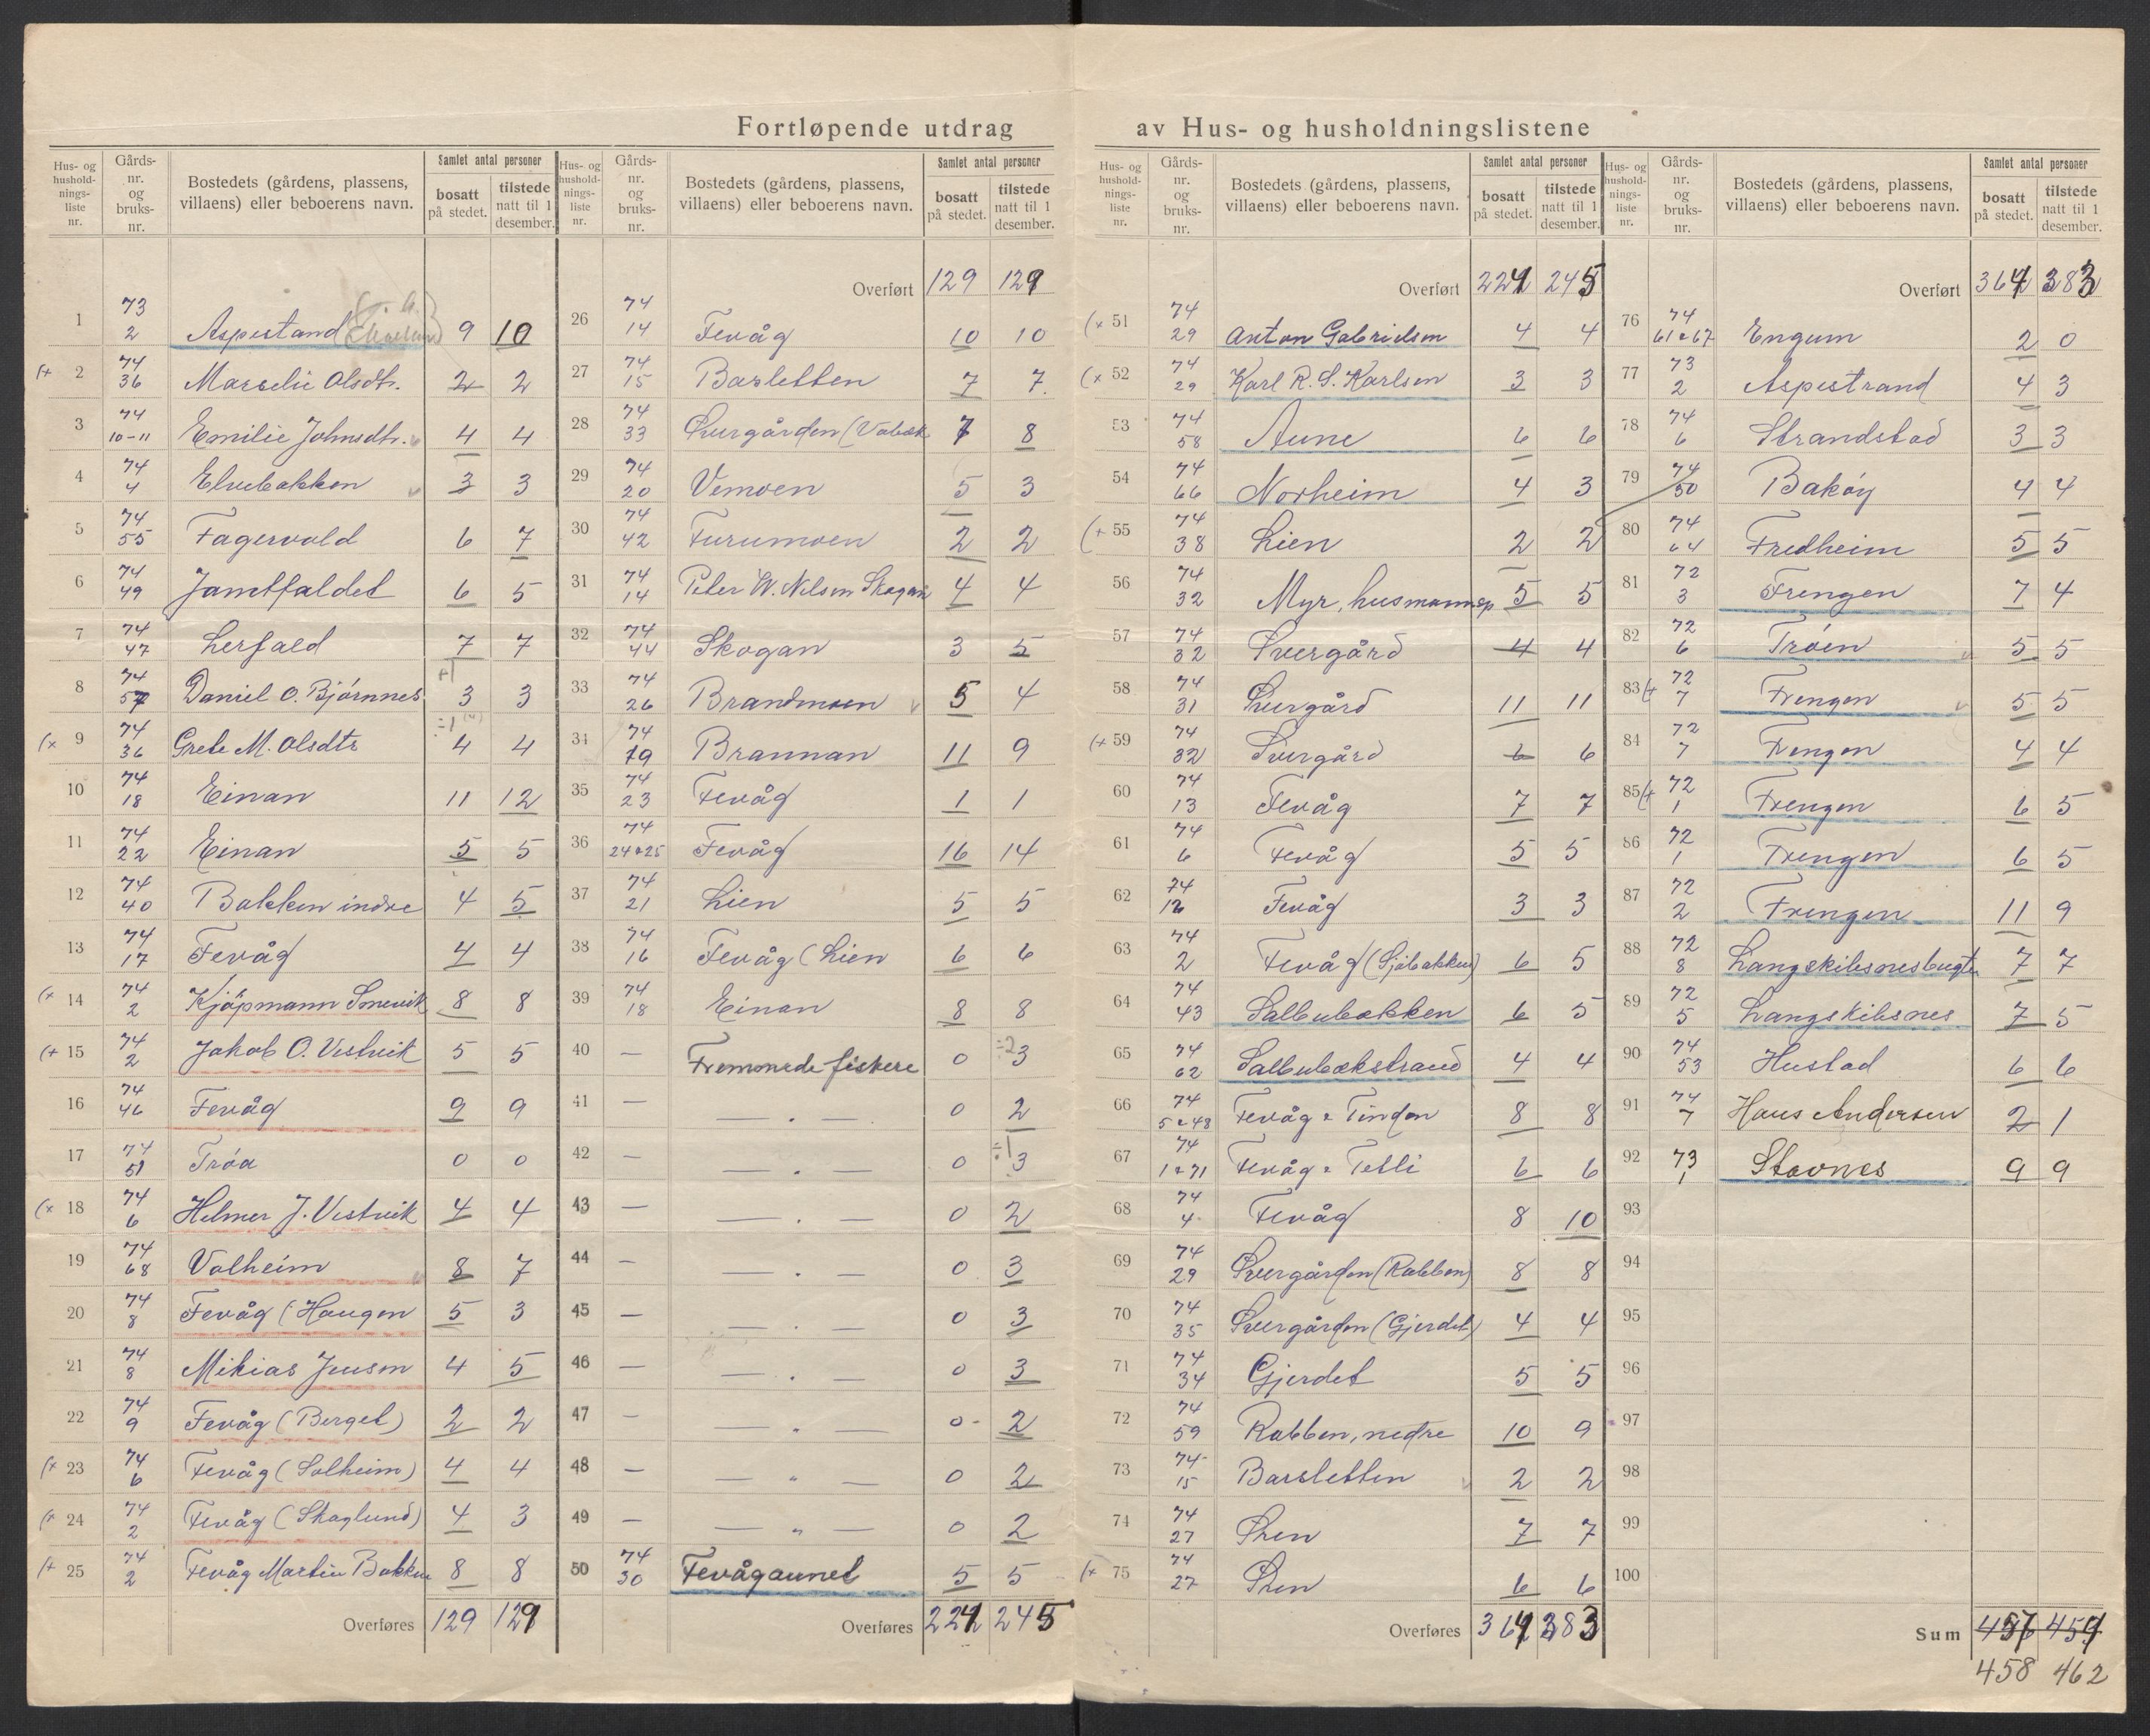 Fortløpende utdrag av Hus- og husholdningslistene
Hus- og husholdnings-liste nr. Gårds-nr. og bruks-nr. Bostedets (gårdens, plassens, villaens) eller beboerens navn. Samlet antal personer bosatt på stedet. tilstede natt til 1 desember.
1 73 2 Aspestand 9 10
(+ 2 74 36 Marselie Olsdtr. 2 2
3 74 10-11 Emilie Johnsdtr. 4 4
4 74 4 Elvebakken 3 3
5 74 55 Fagervold 6 7
6 74 49 Jamtfaldet 6 5
7 74 47 Lerfald 7 7
8 74 57 Daniel O. Bjørnnes 3 3
(x 9 74 36 Grete M. Olsdtr 4 4
10 74 18 Einan 11 12
11 74 22 Einan 5 5
12 74 40 Bakken indre 4 5
13 74 17 Fevåg 4 4
(x 14 74 2 Kjøpmann Smevik 8 8
(+ 15 74 2 Jakob O. Vestvik 5 5
16 74 46 Fevåg 9 9
17 74 51 Trøa 0 0
(x 18 74 6 Helmer J. Vestvik 4 4
19 74 68 Valheim 8 7
20 74 8 Fevåg (Haugen 5 3
21 74 8 Mikias Jensen 4 5
22 74 9 Fevåg (Berget) 2 2
(+ 23 74 6 Fevåg (Solheim) 4 4
(+ 24 74 2 Fevåg (Skoglund) 4 3
(+ 25 74 2 Fevåg Martin Bakken 8 8
Overføres 129 129
Hus- og husholdnings-liste nr. Gårds-nr. og bruks-nr. Bostedets (gårdens, plassens, villaens) eller beboerens navn. Samlet antal personer bosatt på stedet. tilstede natt til 1 desember.
Overført 129 129
26 74 14 Fevåg 10 10
27 74 15 Barsletten 7 7
28 74 33 Svergården 7 8
29 74 20 Vemoen 5 3
30 74 42 Furumoen 2 2
31 74 14 Peter W. Nilsen Skogan 4 4
32 74 44 Skogan 3 5
33 74 26 Brandmoen 5 4
34 74 19 Brannan 11 9
35 74 23 Fevåg 1 1
36 74 24 & 25 Fevåg 16 14
37 74 21 Lien 5 5
38 74 16 Fevåg (Lien 6 6
39 74 18 Einan 8 8
40 — Fremmede fiskere 0 ÷2 3
41 — — . — 0 2
42 — — . — 0 ÷1 3
43 — — . — 0 2
44 — — . — 0 3
45 — — . — 0 3
46 — — . — 0 3
47 — — " — 0 2
48 — — " — 0 2
49 — — " — 0 2
50 74 30 Fevågaunet 5 5
Overføres 221 245
Hus- og husholdnings-liste nr. Gårds-nr. og bruks-nr. Bostedets (gårdens, plassens, villaens) eller beboerens navn. Samlet antal personer bosatt på stedet. tilstede natt til 1 desember.
Overført 221 245
(x 51 74 29 Anton Gabrielsen 4 4
(x 52 74 29 Karl R. S. Karlsen 3 3
53 74 58 Aune 6 6
54 74 66 Norheim 4 3
(+ 55 74 38 Lien 2 2
56 74 32 Myr, husmannspl 5 5
57 74 32 Svergård 4 4
58 74 31 Svergård 11 11
(+ 59 74 32 Svergård 6 6
60 74 13 Fevåg 7 7
61 74 6 Fevåg 5 5
62 74 12 Fevåg 3 3
63 74 2 Fevåg (Sjøbakken) 6 5
64 74 43 Salbubekken 6 5
65 74 62 Salbubekstrand 4 4
66 74 5 & 48 Fevåg & Tinden 8 8
67 74 1 & 71 Fevåg & Tetli 6 6
68 74 4 Fevåg 8 10
69 74 29 Svergården (Rabben) 8 8
70 74 35 Svergården (Gjerdet) 4 4
71 74 34 Gjerdet 5 5
72 74 59 Rabben, nedre 10 9
73 74 15 Barsletten 2 2
74 74 27 Øren 7 7
(+ 75 74 27 Øren 6 6
Overføres 364 383
Hus- og husholdnings-liste nr. Gårds-nr. og bruks-nr. Bostedets (gårdens, plassens, villaens) eller beboerens navn. Samlet antal personer bosatt på stedet. tilstede natt til 1 desember.
Overført 364 383
76 74 61 & 67 Engum 2 0
77 73 2 Aspestrand 4 3
78 74 6 Strandstad 3 3
79 74 50 Bakøy 4 4
80 74 64 Fredheim 5 5
81 72 3 Frengen 7 4
82 72 6 Trøen 5 5
83 (+ 72 7 Frengen 5 5
84 72 7 Frengen 4 4
85 (+ 72 1 Frengen 6 5
86 72 1 Frengen 6 5
87 72 2 Frengen 11 9
88 72 8 Langskibsnesbugten 7 7
89 72 5 Langskibsnes 7 5
90 74 53 Hustad 6 6
91 74 7 Hans Andersen 2 1
92 73 1 Stavnes 9 9
93
94
95
96
97
98
99
100
Sum 457 459
458 462